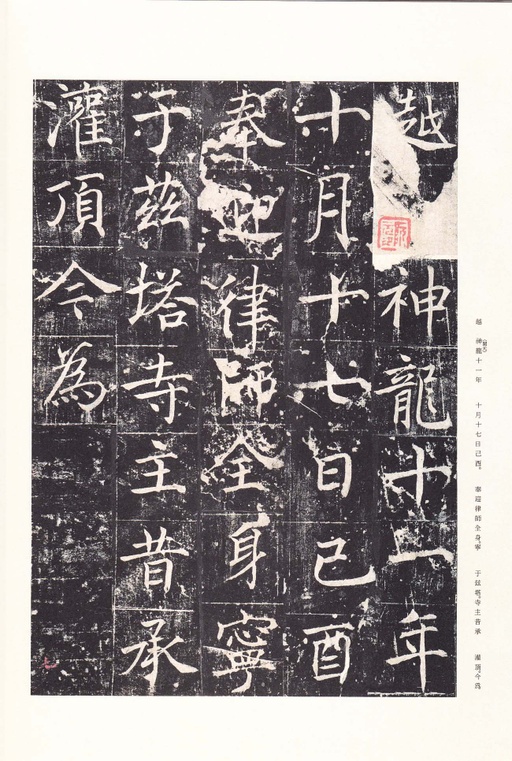 越神龍十一年
十月十七日己酉
奉迎律師全身寧
于茲塔寺主昔承
灌頂今為
越 神龍十一年 十月十七日己酉。 奉迎律師全身寧 于茲塔。寺主昔承 灌頂。今爲